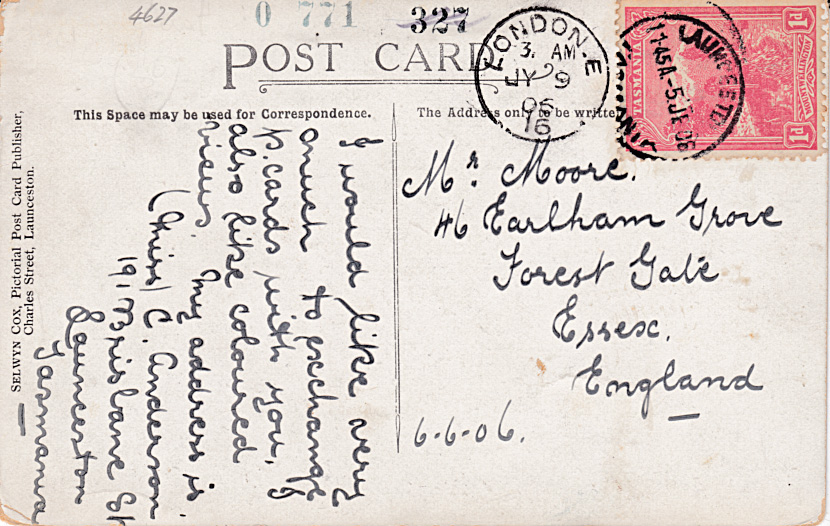 4627
0 771
327
POST CARD
LONDON.E
3. AM
JY 9
06
16
LAUNCESTO
11·45A·5JL06
TASMANIA
1D
1D
This Space may be used for Correspondence.
The Address only to be written
SELWYN COX, Pictorial Post Card Publisher,
Charles Street, Launceston.
I would like very
much to exchange
p.cards with you, I
also like coloured
views. My address is.
(Miss) C. Anderson
191 Brisbane St
Launceston
Tasmania
Mr. Moore.
46 Earlham Grove
Forest Gate
Essex.
England
6-6-06.